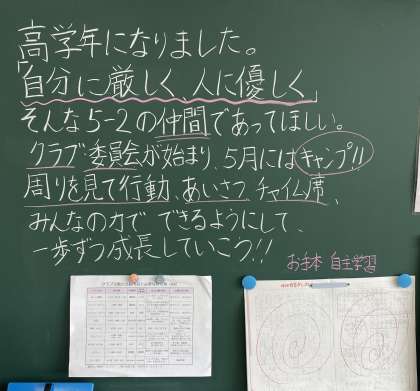 高学年になりました。
「自分に厳しく、人に優しく」
そんな5-2の仲間であってほしい。
クラブ委員会が始まり、5月にはキャンプ!!
周りを見て行動、あいさつ、チャイム席、
みんなの力で できるようにして、
一歩ずつ成長していこう!!
お手本 自主学習